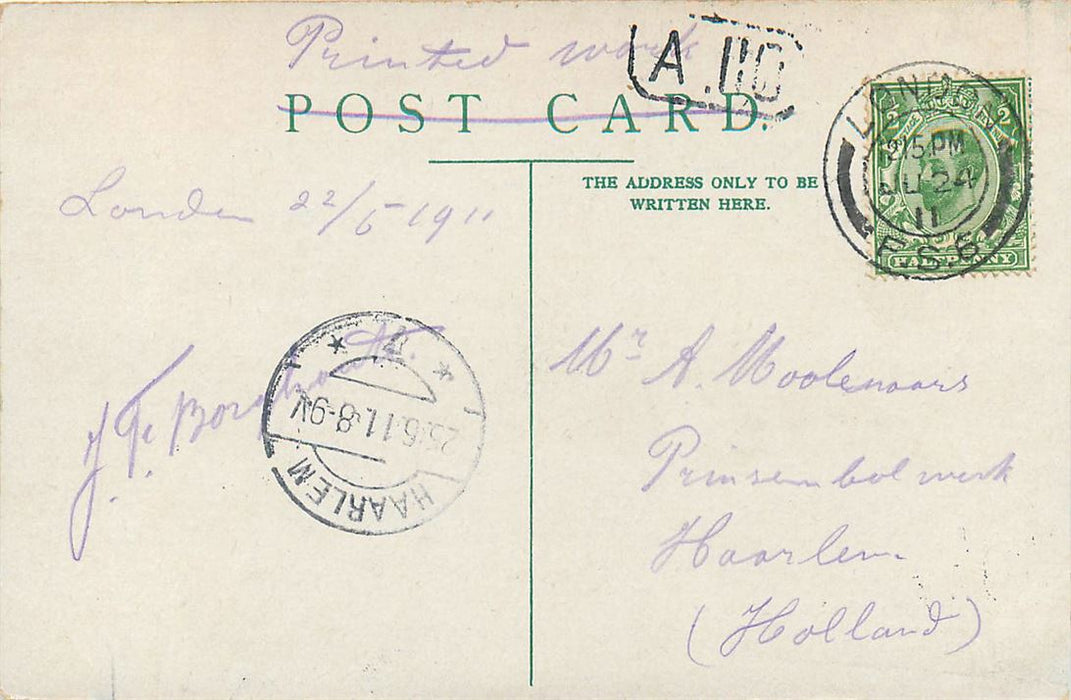 Printed work
A .110
POST CARD.
THE ADDRESS ONLY TO BE
WRITTEN HERE.
LONDON
12.15.PM
JU 24
11
F.S.6
HALFPENNY
London 22/6 1911
HAARLEM
25.6.11.8-9V
Mr A. Moolenaars
Prinsenbolwerk
Haarlem
(Holland)